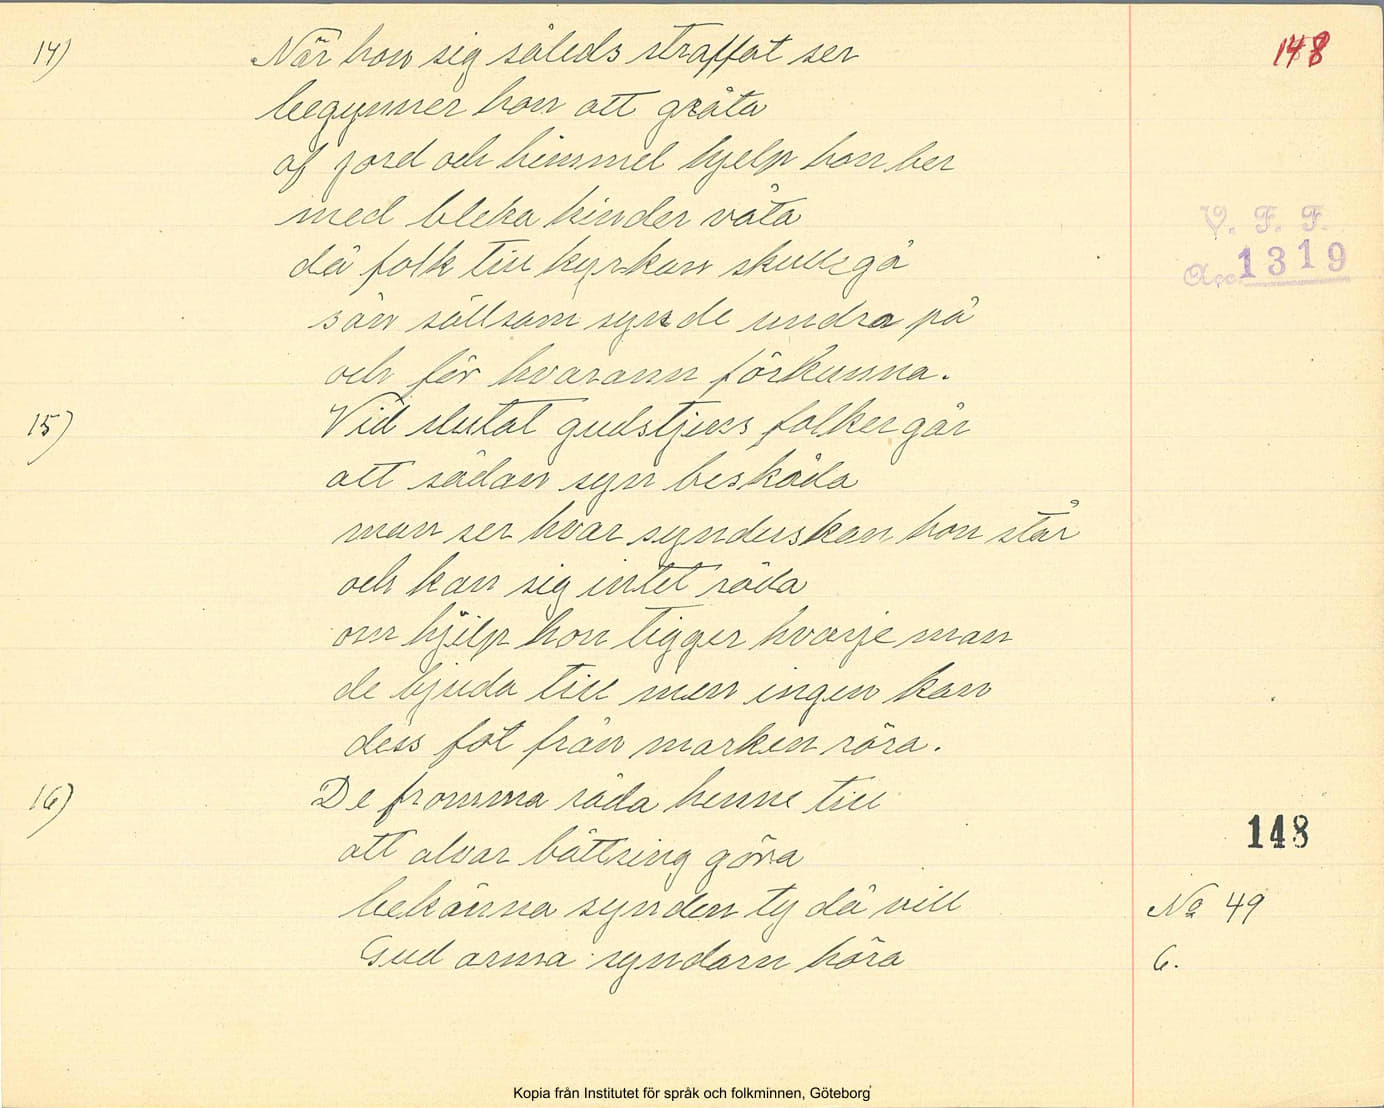 14) När hon sig såleds straffat ser
148
begynner hon att gråta
af jord och himmel hjelp hon ber
med bleka kinder våta
V. F. F.
då folk till kyrkan skulle gå
Acc. 1319
sån sällsam synde undra på
och för hvarann förkunna.
15) Vid slutat gudstjens folket går
att sådan syn beskåda
man ser hvar synderskan hon står
och kan sig intet råda
om hjelp hon tigger hvarje man
de bjuda till men ingen kan
dess fot från marken röra.
16) De fromma råda henne till
att alvar bättring göra
148
bekänna synden ty då vill
No 49
Gud arma syndarn höra
6.
Kopia från Institutet för språk och folkminnen, Göteborg